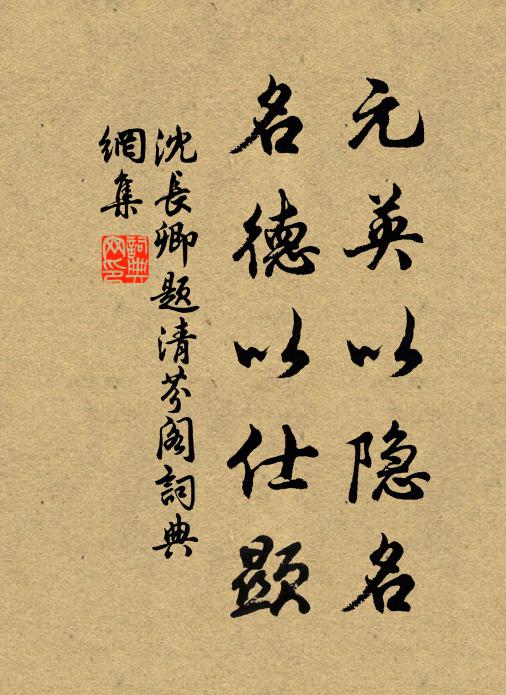 元英以隐名
名德以仕顯
沈長卿题清芬阁詞典
網集
詞典
网印